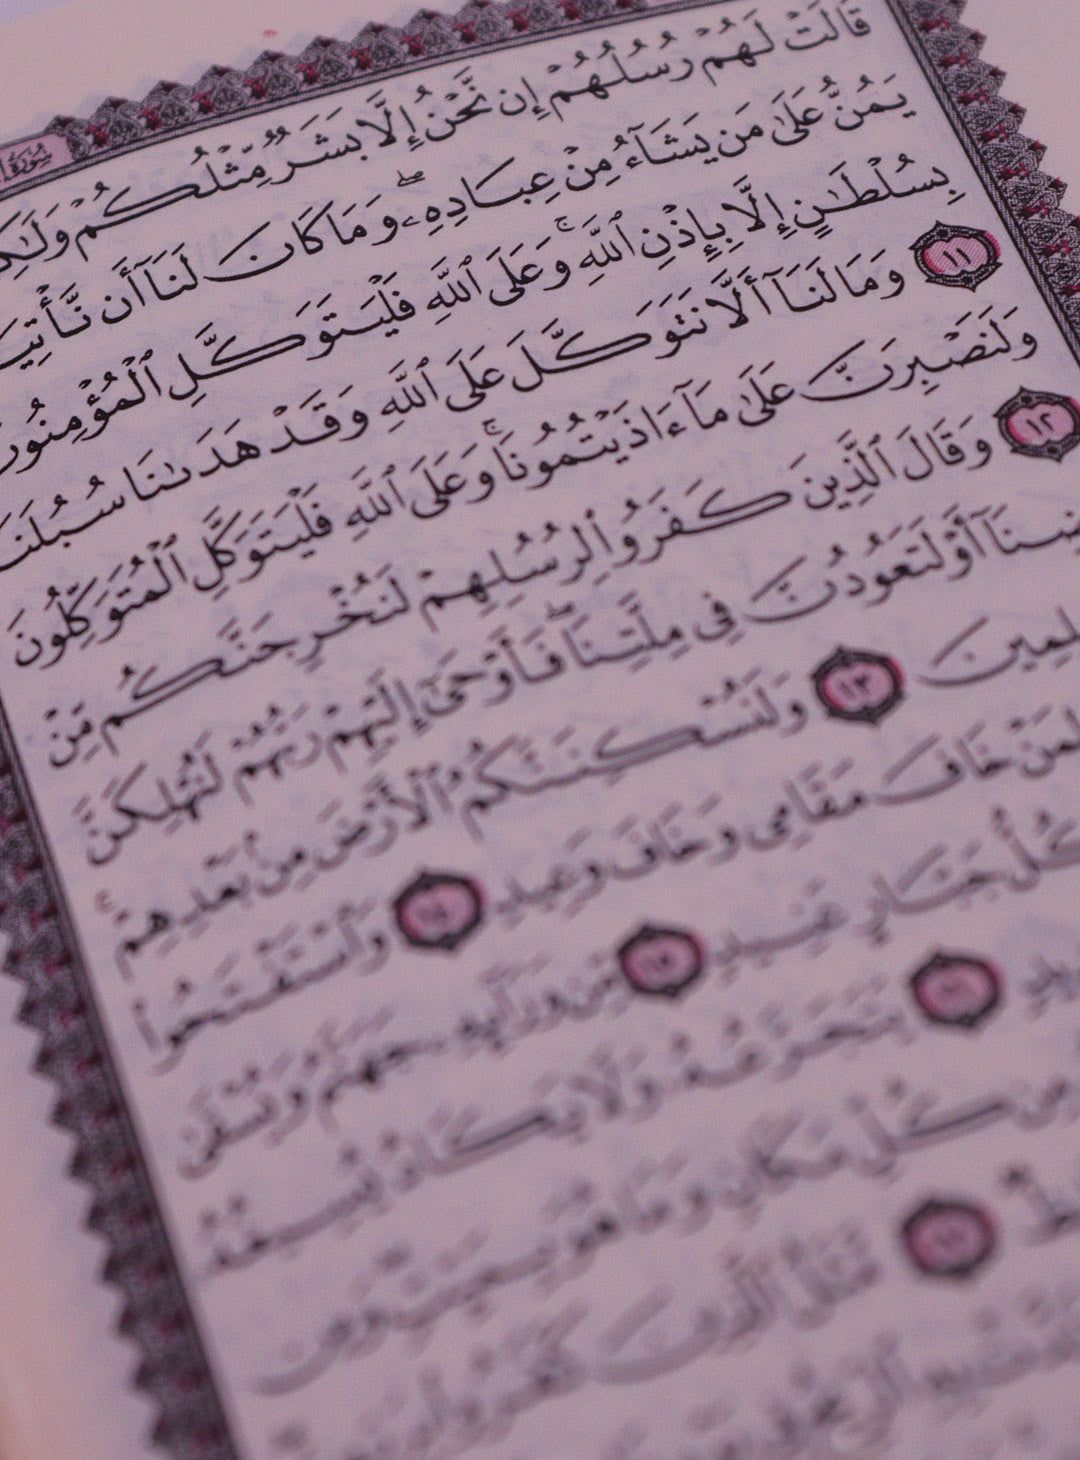 سُورَةُ
قَالَتْ لَهُمْ رُسُلُهُمْ إِن نَّحْنُ إِلَّا بَشَرٌ مِّثْلُكُمْ وَلَٰكِ
يَمُنُّ عَلَىٰ مَن يَشَآءُ مِنْ عِبَادِهِۦ ۖ وَمَا كَانَ لَنَآ أَن نَّأْتِيَ
بِسُلْطَٰنٍ إِلَّا بِإِذْنِ ٱللَّهِ ۚ وَعَلَى ٱللَّهِ فَلْيَتَوَكَّلِ ٱلْمُؤْمِنُون
١١ وَمَا لَنَآ أَلَّا نَتَوَكَّلَ عَلَى ٱللَّهِ وَقَدْ هَدَىٰنَا سُبُلَنَا
وَلَنَصْبِرَنَّ عَلَىٰ مَآ ءَاذَيْتُمُونَا ۚ وَعَلَى ٱللَّهِ فَلْيَتَوَكَّلِ ٱلْمُتَوَكِّلُونَ
١٢ وَقَالَ ٱلَّذِينَ كَفَرُوا۟ لِرُسُلِهِمْ لَنُخْرِجَنَّكُم مِّنْ
ضِنَآ أَوْ لَتَعُودُنَّ فِى مِلَّتِنَا ۖ فَأَوْحَىٰٓ إِلَيْهِمْ رَبُّهُمْ لَنُهْلِكَنَّ
لِمِينَ ١٣ وَلَنُسْكِنَنَّكُمُ ٱلْأَرْضَ مِنۢ بَعْدِهِمْ ۚ
لِمَنْ خَافَ مَقَامِى وَخَافَ وَعِيدِ ١٤ وَٱسْتَفْتَحُوا۟
كُلُّ جَبَّارٍ عَنِيدٍ ١٥ مِّن وَرَآئِهِۦ جَهَنَّمُ وَيُسْقَىٰ
دِيدٍ ١٦ يَتَجَرَّعُهُۥ وَلَا يَكَادُ يُسِيغُهُۥ
مِن كُلِّ مَكَانٍ وَمَا هُوَ بِمَيِّتٍ ۖ وَمِن
ظٌ ١٧ مَّثَلُ ٱلَّذِينَ كَفَرُوا۟